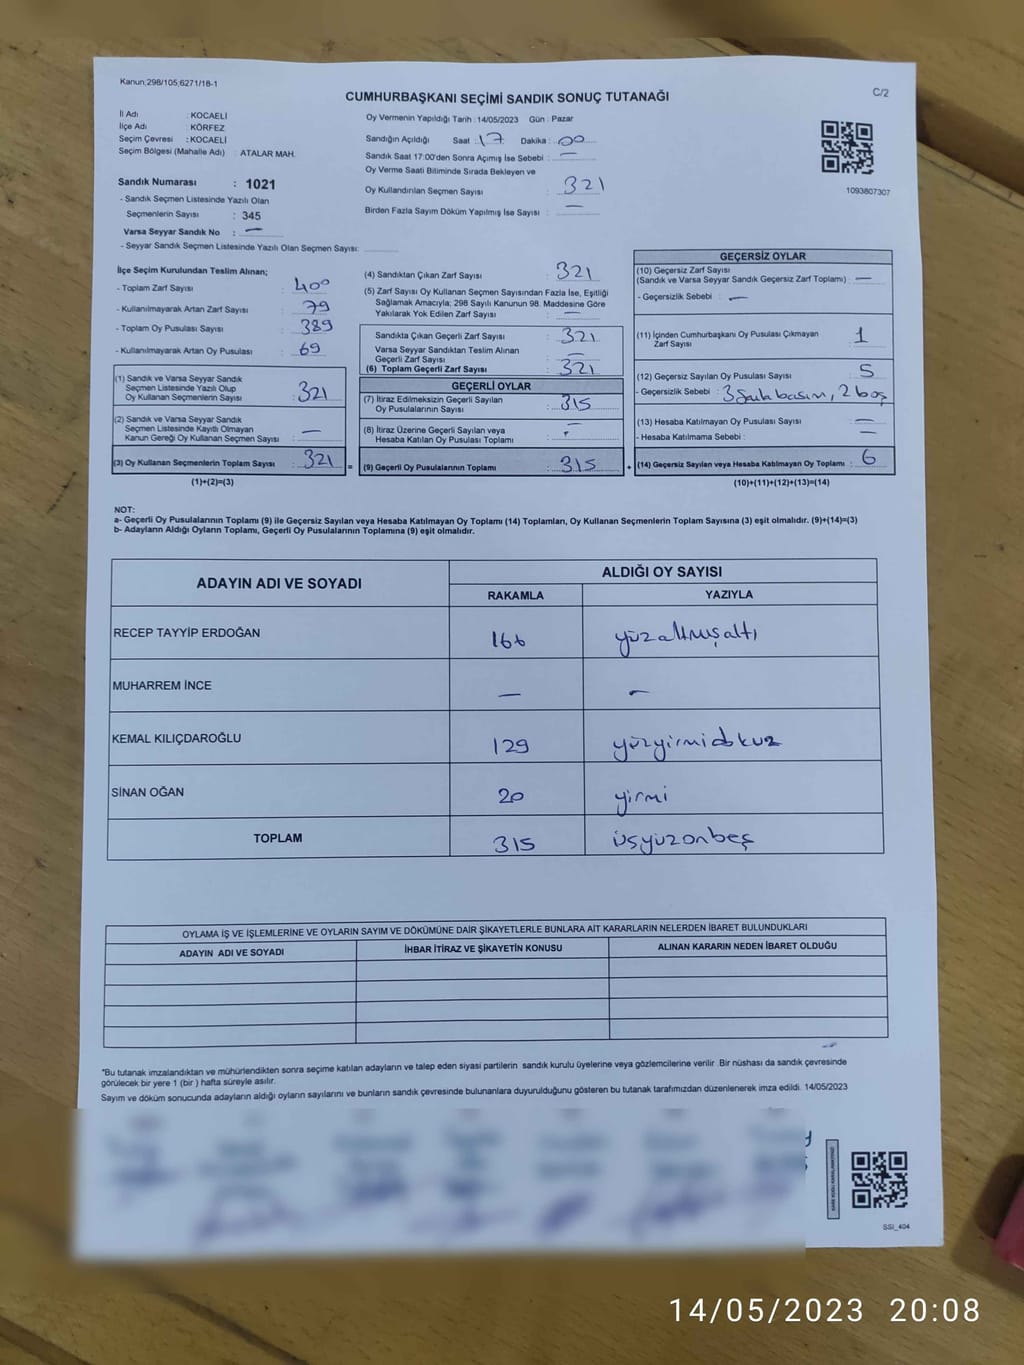 Kanun;298/105;6271/18-1
C/2
CUMHURBAŞKANI SEÇİMİ SANDIK SONUÇ TUTANAĞI
İl Adı : KOCAELİ
İlçe Adı KÖRFEZ
Seçim Çevresi : KOCAELİ
Seçim Bölgesi (Mahalle Adı) : ATALAR MAH.
Sandık Numarası : 1021
- Sandık Seçmen Listesinde Yazılı Olan
Seçmenlerin Sayısı : 345
Varsa Seyyar Sandık No : —
- Seyyar Sandık Seçmen Listesinde Yazılı Olan Seçmen Sayısı:
Oy Vermenin Yapıldığı Tarih : 14/05/2023 Gün : Pazar
Sandığın Açıldığı Saat : 17 Dakika : 00
Sandık Saat 17:00'den Sonra Açımış İse Sebebi : —
Oy Verme Saati Bitiminde Sırada Bekleyen ve
Oy Kullandırılan Seçmen Sayısı : 321
Birden Fazla Sayım Döküm Yapılmış İse Sayısı : —
1093807307
İlçe Seçim Kurulundan Teslim Alınan;
- Toplam Zarf Sayısı : 400
- Kullanılmayarak Artan Zarf Sayısı : 79
- Toplam Oy Pusulası Sayısı : 389
- Kullanılmayarak Artan Oy Pusulası : 69
(1) Sandık ve Varsa Seyyar Sandık
Seçmen Listesinde Yazılı Olup
Oy Kullanan Seçmenlerin Sayısı : 321
(2) Sandık ve Varsa Seyyar Sandık
Seçmen Listesinde Kayıtlı Olmayan
Kanun Gereği Oy Kullanan Seçmen Sayısı : —
(3) Oy Kullanan Seçmenlerin Toplam Sayısı : 321 =
(1)+(2)=(3)
(4) Sandıktan Çıkan Zarf Sayısı : 321
(5) Zarf Sayısı Oy Kullanan Seçmen Sayısından Fazla İse, Eşitliği
Sağlamak Amacıyla; 298 Sayılı Kanunun 98. Maddesine Göre
Yakılarak Yok Edilen Zarf Sayısı : —
Sandıkta Çıkan Geçerli Zarf Sayısı : 321
Varsa Seyyar Sandıktan Teslim Alınan
Geçerli Zarf Sayısı : —
(6) Toplam Geçerli Zarf Sayısı : 321
GEÇERLİ OYLAR
(7) İtiraz Edilmeksizin Geçerli Sayılan
Oy Pusulalarının Sayısı : 315
(8) İtiraz Üzerine Geçerli Sayılan veya
Hesaba Katılan Oy Pusulası Toplamı :
(9) Geçerli Oy Pusulalarının Toplamı : 315 +
GEÇERSİZ OYLAR
(10) Geçersiz Zarf Sayısı
(Sandık ve Varsa Seyyar Sandık Geçersiz Zarf Toplamı) : —
- Geçersizlik Sebebi : —
(11) İçinden Cumhurbaşkanı Oy Pusulası Çıkmayan
Zarf Sayısı : 1
(12) Geçersiz Sayılan Oy Pusulası Sayısı : 5
- Geçersizlik Sebebi : 3 basım, 2 boş
(13) Hesaba Katılmayan Oy Pusulası Sayısı : —
- Hesaba Katılmama Sebebi : —
(14) Geçersiz Sayılan veya Hesaba Katılmayan Oy Toplamı : 6
(10)+(11)+(12)+(13)=(14)
NOT:
a- Geçerli Oy Pusulalarının Toplamı (9) ile Geçersiz Sayılan veya Hesaba Katılmayan Oy Toplamı (14) Toplamları, Oy Kullanan Seçmenlerin Toplam Sayısına (3) eşit olmalıdır. (9)+(14)=(3)
b- Adayların Aldığı Oyların Toplamı, Geçerli Oy Pusulalarının Toplamına (9) eşit olmalıdır.
ADAYIN ADI VE SOYADI
ALDIĞI OY SAYISI
RAKAMLA YAZIYLA
RECEP TAYYİP ERDOĞAN 166 yüzaltmışaltı
MUHARREM İNCE — —
KEMAL KILIÇDAROĞLU 129 yüzyirmidokuz
SİNAN OĞAN 20 yirmi
TOPLAM 315 üçyüzonbeş
OYLAMA İŞ VE İŞLEMLERİNE VE OYLARIN SAYIM VE DÖKÜMÜNE DAİR ŞİKAYETLERLE BUNLARA AİT KARARLARIN NELERDEN İBARET BULUNDUKLARI
ADAYIN ADI VE SOYADI İHBAR İTİRAZ VE ŞİKAYETİN KONUSU ALINAN KARARIN NEDEN İBARET OLDUĞU
*Bu tutanak imzalandıktan ve mühürlendikten sonra seçime katılan adayların ve talep eden siyasi partilerin sandık kurulu üyelerine veya gözlemcilerine verilir. Bir nüshası da sandık çevresinde
görülecek bir yere 1 (bir ) hafta süreyle asılır.
Sayım ve döküm sonucunda adayların aldığı oyların sayılarını ve bunların sandık çevresinde bulunanlara duyurulduğunu gösteren bu tutanak tarafımızdan düzenlenerek imza edildi. 14/05/2023
SSI_404
14/05/2023 20:08